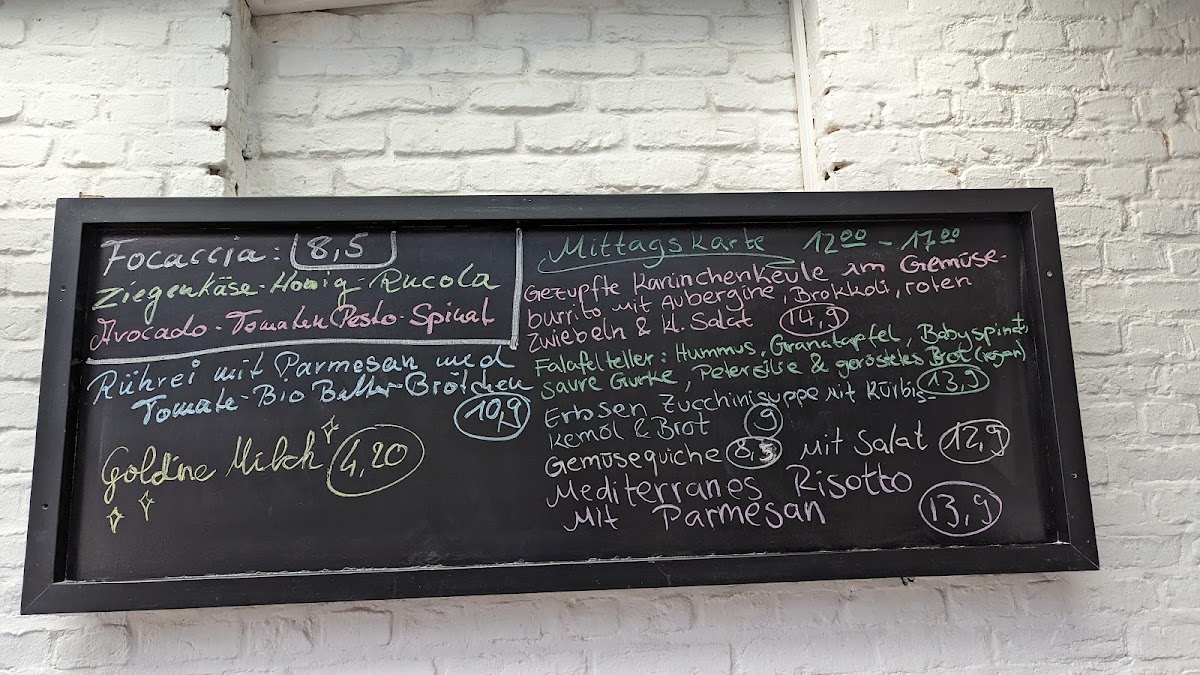 Focaccia: 8,5
Ziegenkäse-Honig-Rucola
Avocado-Tomaten Pesto-Spinat
Rührei mit Parmesan und
Tomate-Bio Butter-Brötchen
10,9
Goldine Milch 4,20
Mittagskarte 12⁰⁰ - 17⁰⁰
Gezupfte Kaninchenkeule im Gemüse-
burrito mit Aubergine, Brokkoli, roten
Zwiebeln & kl. Salat 14,9
Falafelteller: Hummus, Granatapfel, Babyspinat,
saure Gurke, Petersilie & geröstetes Brot (vegan)
13,9
Erbsen Zucchinisuppe mit Kürbis-
kernöl & Brot 9
Gemüsequiche 8,5 mit Salat 12,9
Mediterranes Risotto
mit Parmesan 13,9